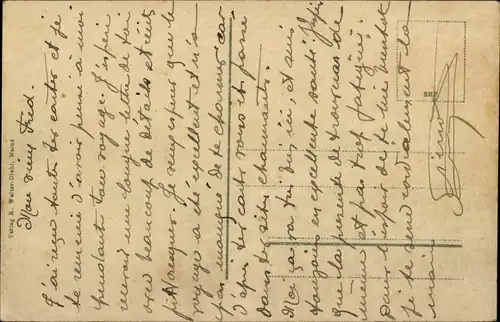 Mon vieux Fred.
J'ai reçu toutes tes cartes et je
te remercie d'avoir pensé à moi
pendant ton voyage. J'espère
recevoir une longue lettre de toi
avec beaucoup de détails et
Je veux espérer que le
voyage a été excellent et n'a
pas manqué de te charmer car
d'après tes cartes vous
dans des sites charmants.
Moi ça va très bien ici, et suis
toujours en excellente santé
que la pensée de
et pas trop fatigué.
Dans l'espoir de te lire bientôt
je te serre cordialement la
main
Verlag K. Walter-Diehl, Mainz